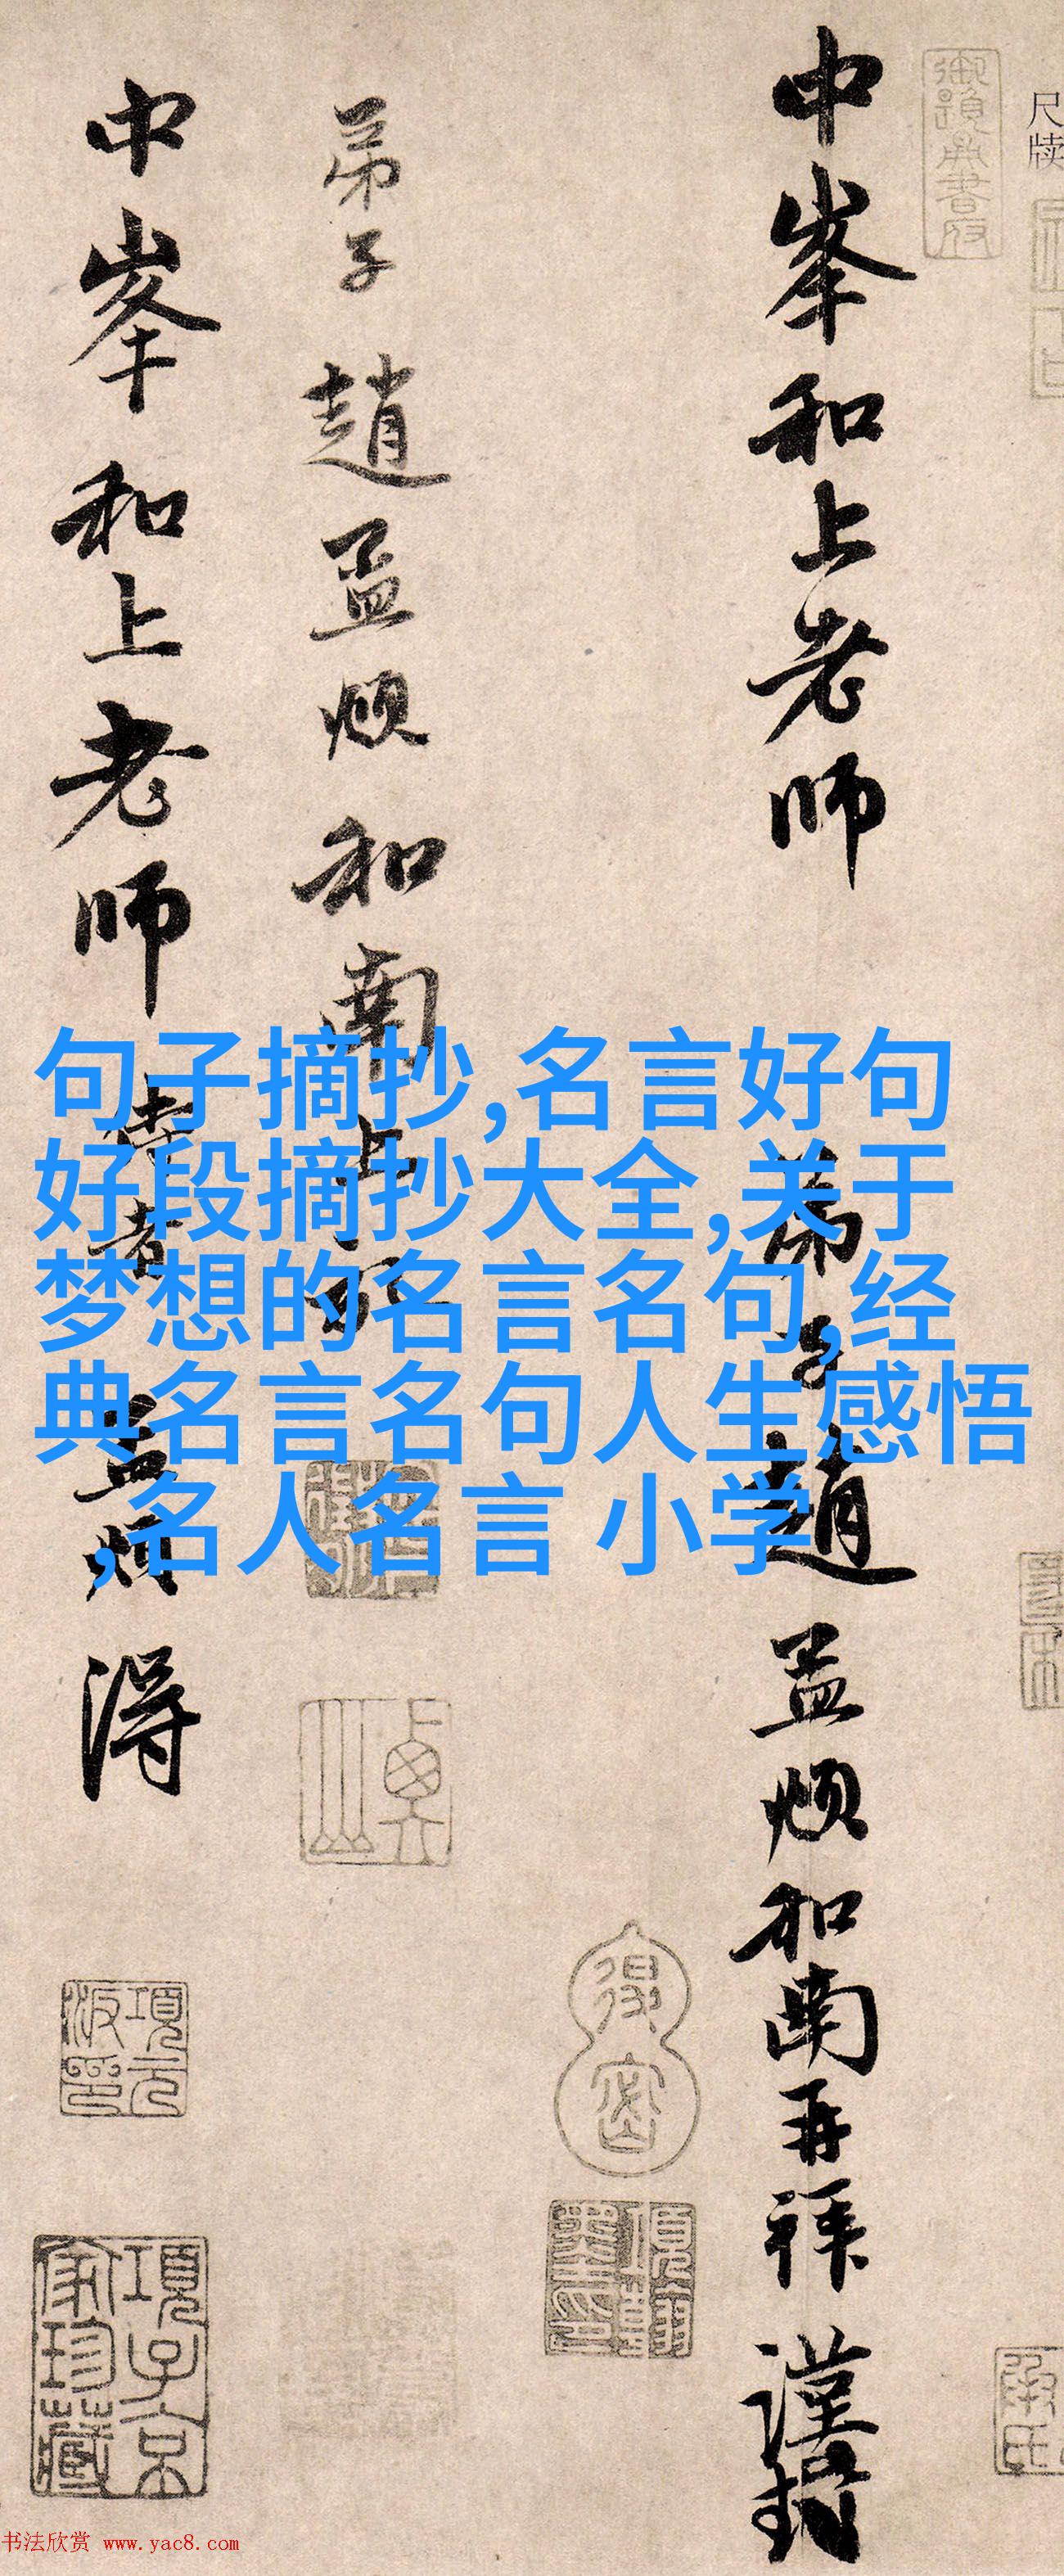 尺牍
中峯和上老師
弟子趙孟頫和南再拜謹封
弟子趙孟頫和南上
中峯和上老師侍者
孟頫
句子摘抄,名言好句
好段摘抄大全,关于
梦想的名言名句,经
典名言名句人生感悟
,名人名言 小学
項元汴印
項子京家珍藏
书法欣赏 www.yac8.com